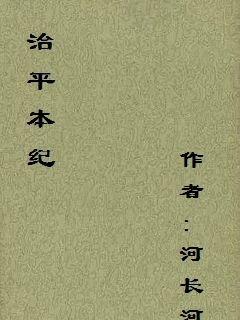 治平本纪
作者:河长河